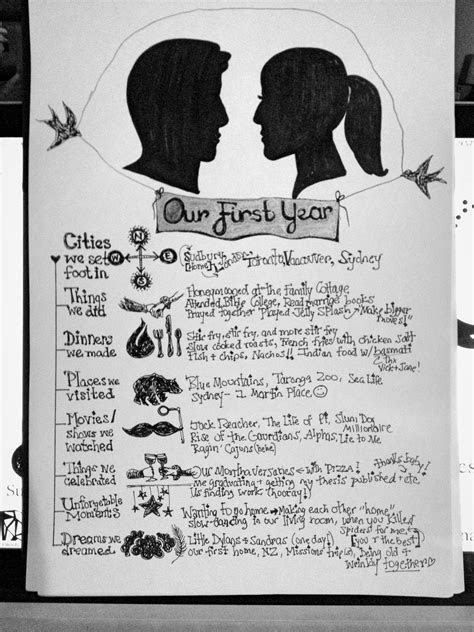 Our First Year
Cities
we set
foot in
N
W E
S
Sudbury
Toronto, Vancouver, Sydney
Things
we did
Honeymooned at the Family Cottage
Attended Bible College, Read marriage books
Prayed together Played Jelly Splash → Make bigger
moves!!
Dinners
we made
Stir fry, stir fry, and more stir fry
Slow cooked roasts, French fries with chicken salt
Fish + chips, Nachos!! Indian food w/basmati
Places we
visited
Blue Mountains, Taronga Zoo, Sea Life
Sydney - 1 Martin Place
Movies/
shows we
watched
Jack Reacher, The Life of Pi, Slum Dog
Millionaire
Rise of the Guardians, Alphas, Lie to Me
Ragin' Cajuns (hehe)
Things we
celebrated
Our Monthaversaries ← with Pizza!
thanks
me graduating + getting my thesis published + etc.
Us finding work
Unforgetable
Moments
Waiting to go home → Making each other "home"
slow-dancing in our living room, when you killed
spiders for me +
[you r the best]
Dreams we
dreamed
Little Dylans + Sandras (one day!)
our first home, NZ, Missions trip(s), Being old +
Wrinkly together